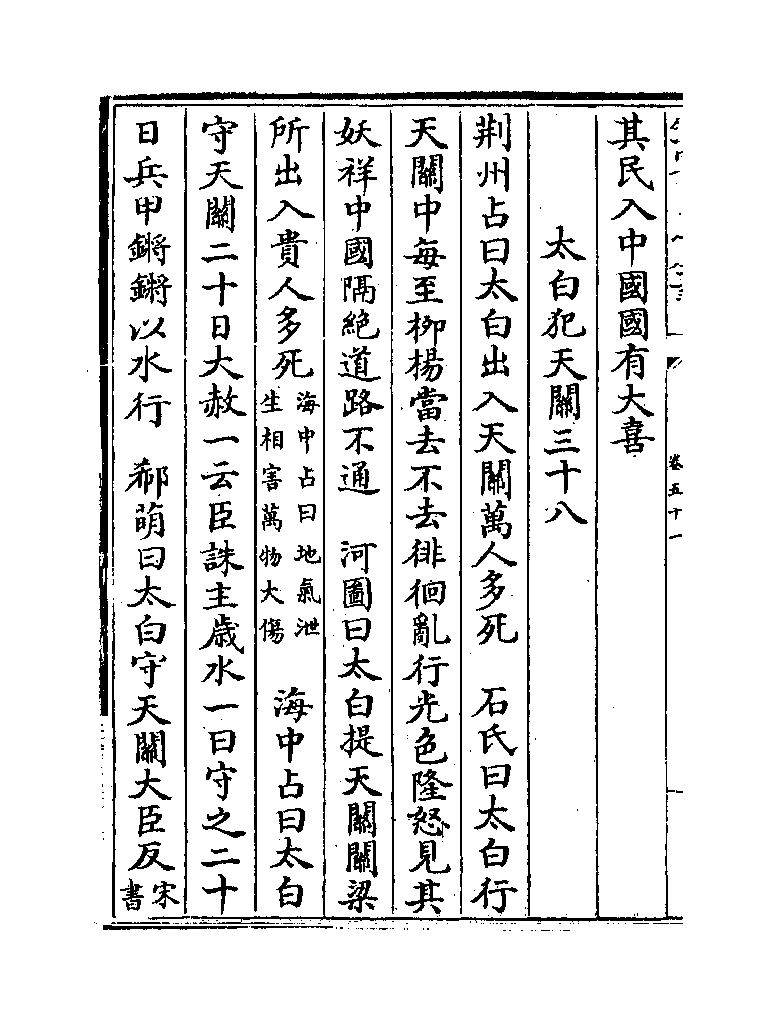 其民入中國國有大喜
太白犯天關三十八
荆州占曰太白出入天關萬人多死　石氏曰太白行
天關中每至柳楊當去不去徘徊亂行光色隆怒見其
妖祥中國隔絶道路不通　河圖曰太白提天關關梁
所出入貴人多死海中占曰地氣泄生相害萬物大傷　海中占曰太白
守天關二十日大赦一云臣誅主歳水一曰守之二十
日兵甲鏘鏘以水行　郗萌曰太白守天關大臣反宋書
卷五十一